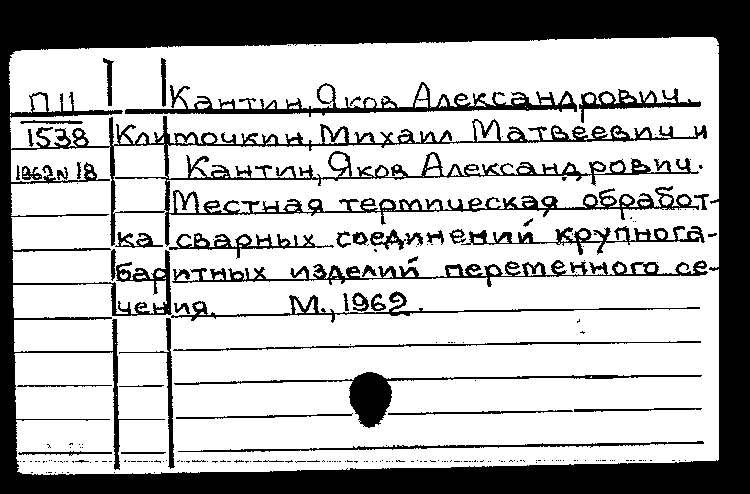 П 11 Кантин, Яков Александрович.
1538 Клиточкин, Михаил Матвеевич и
1962 N 18 Кантин, Яков Александрович.
Местная термическая обработ-
ка сварных соединений крупнога-
баритных изделий переменного се-
чения. М., 1962.